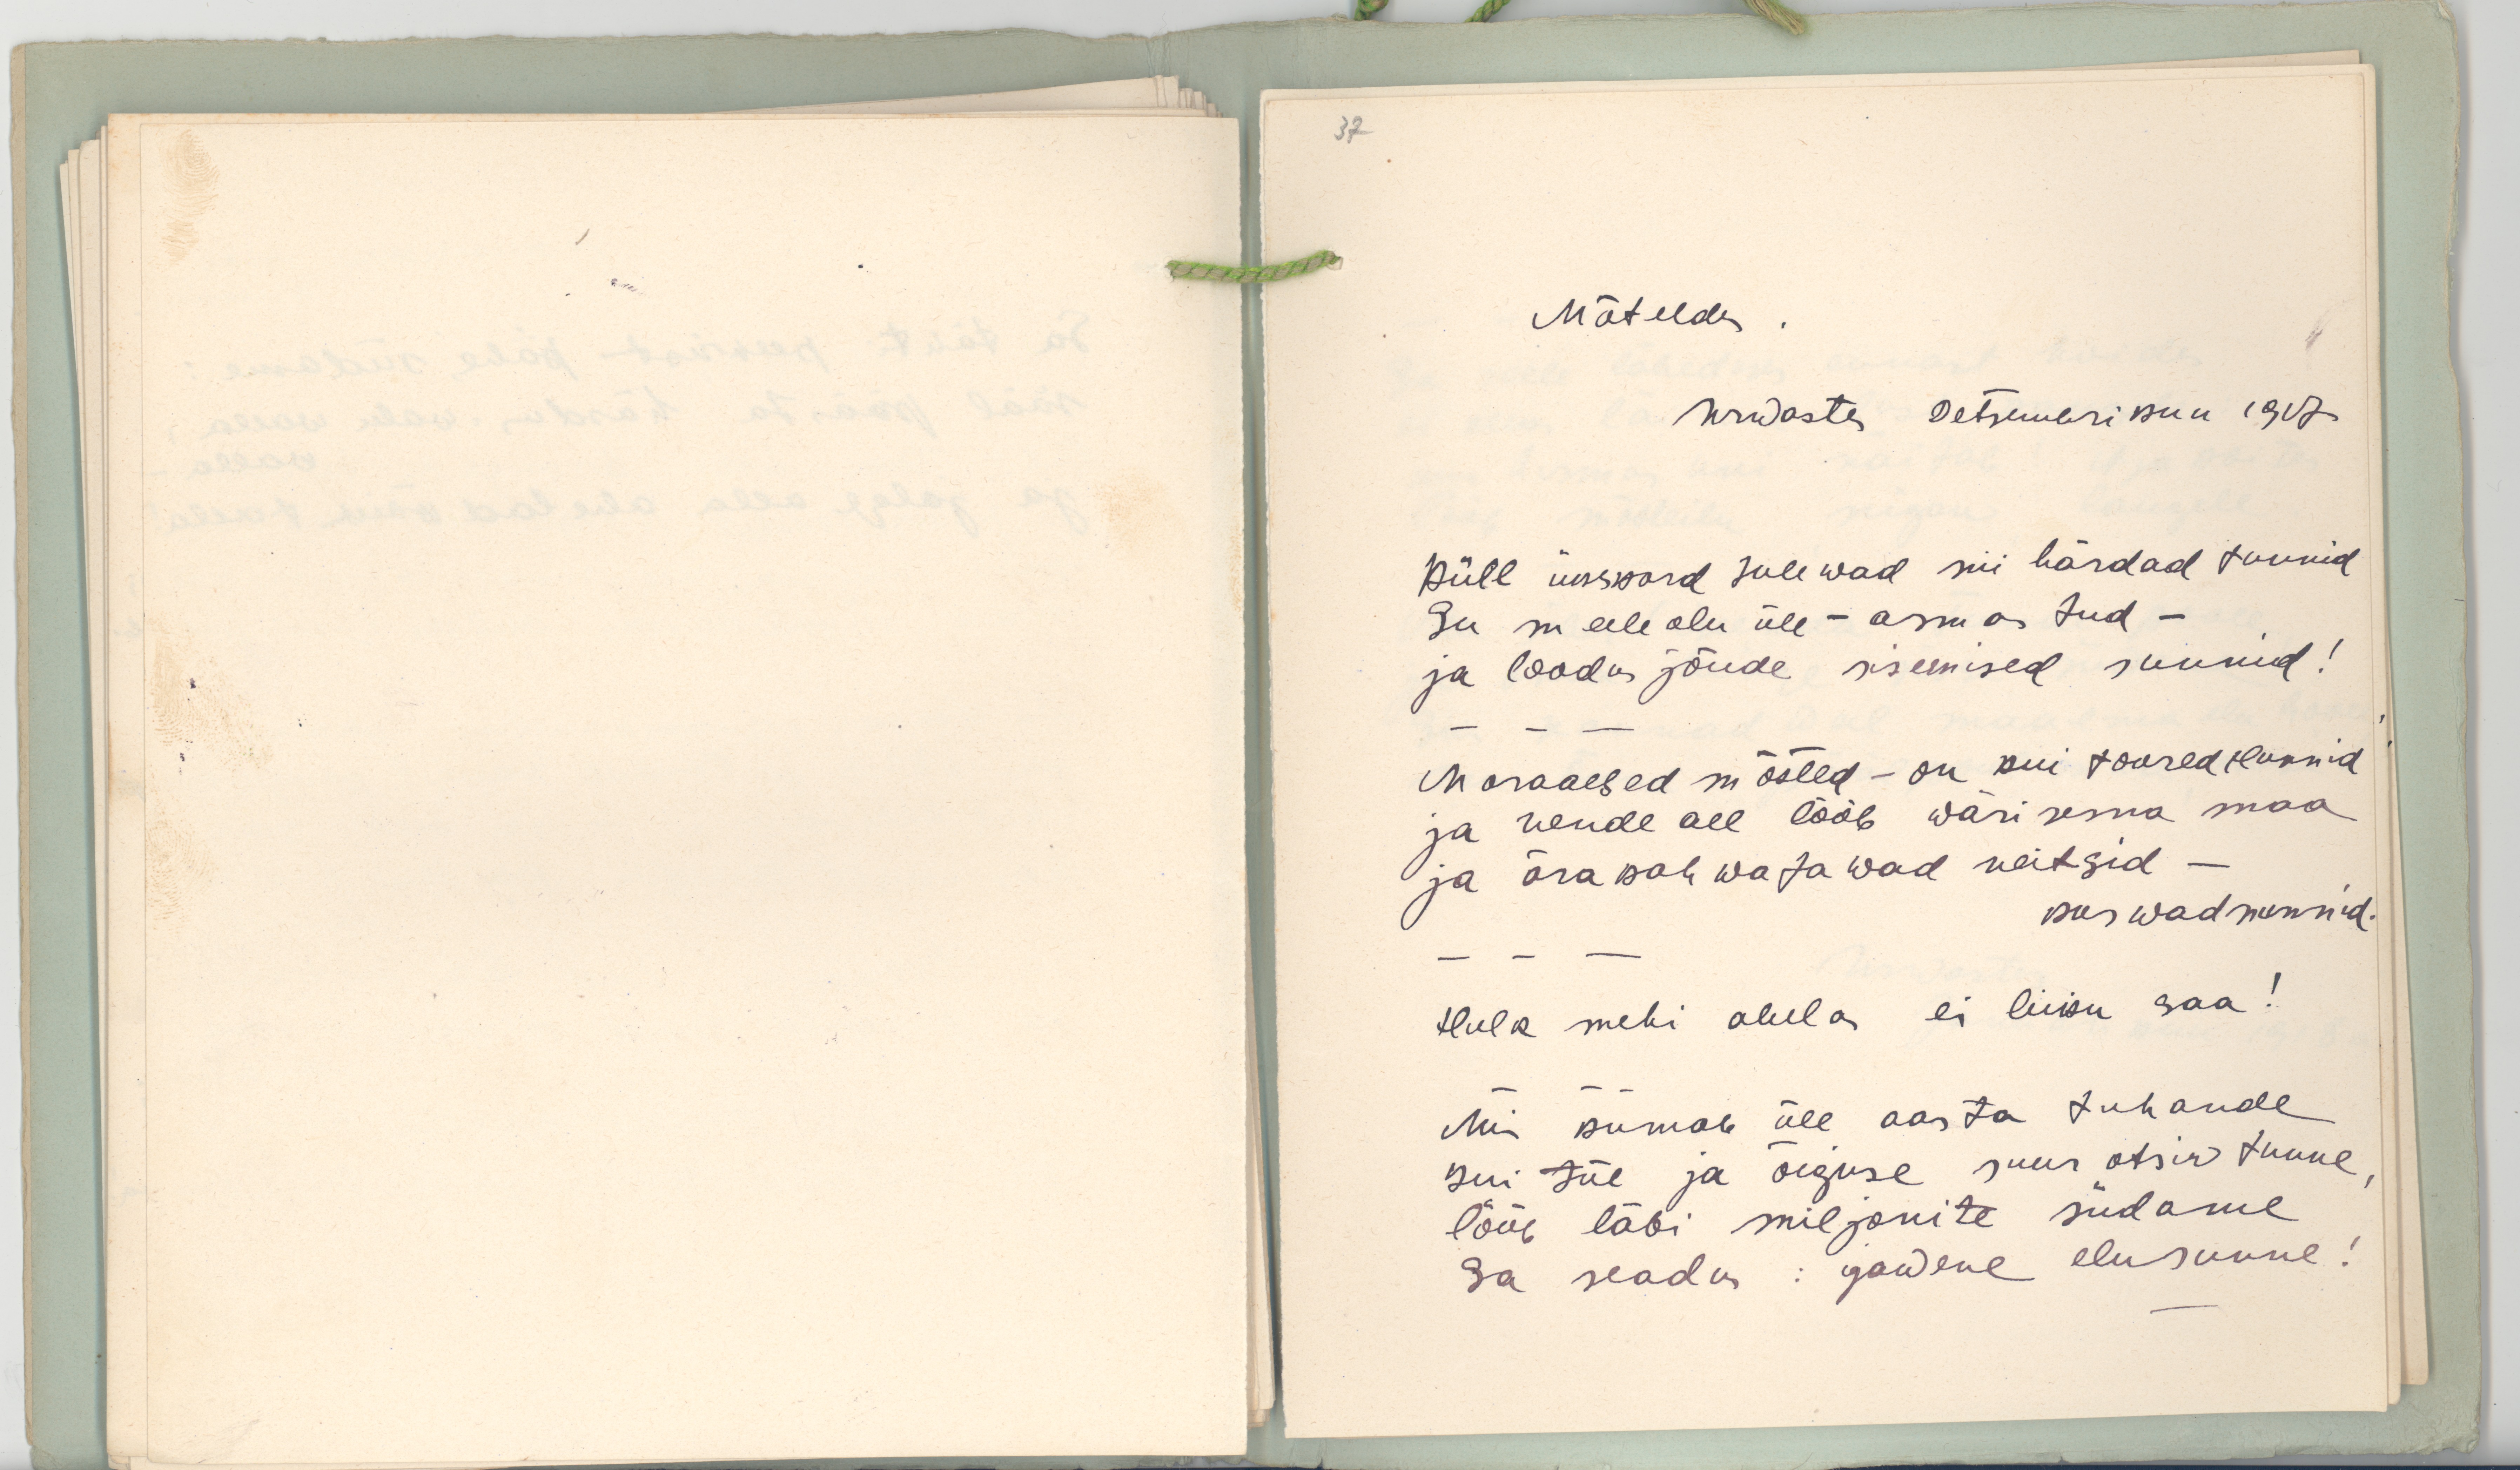 37
Mõteldes.
Urwastes Detsemberi kuu 1917
Küll ükskord tulewad nii härdad tunnid
Su meeleolu üle – armastud –
ja loodusjõude sisemised sunnid!
– – –
Moraalsed mõsted – on kui toored hunnid
ja nende all lööb wärisema maa
ja ärakahwatawad neitsid –
kaswad nunnid.
– – –
Hulk mehi ahelas ei liiku saa!
– – –
Mis kumab üle aasta tuhande
kui tõe ja õiguse suur otsiw tunne,
lööb läbi miljonite südame
Sa seadus : igawene elusunne!